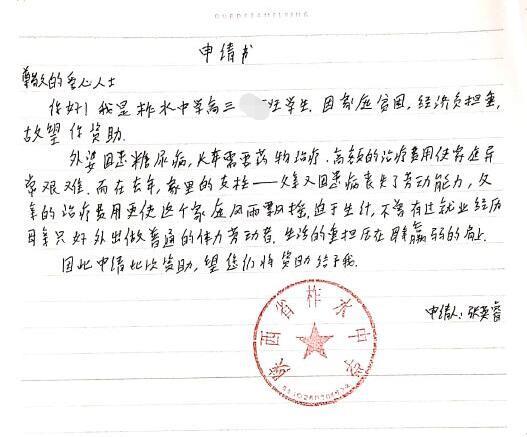 OURDREAMSLPING
申请书
尊敬的爱心人士
你好！我是柞水中学高三 班学生. 因家庭贫困, 经济负担重,
故望你资助.
外婆因患糖尿病, 长年需要药物治疗. 高额的治疗费用使家庭异
常艰难. 而在去年, 家里的支柱——父亲又因患病丧失了劳动能力, 父
亲的治疗费用更使这个家庭风雨飘摇, 迫于生计, 不曾有过就业经历
母亲只好外出做普通的体力劳动者. 生活的重担压在母亲羸弱的肩上.
因此申请此次资助, 望您们将资助给于我.
申请人: 张英睿
陕西省柞水中学